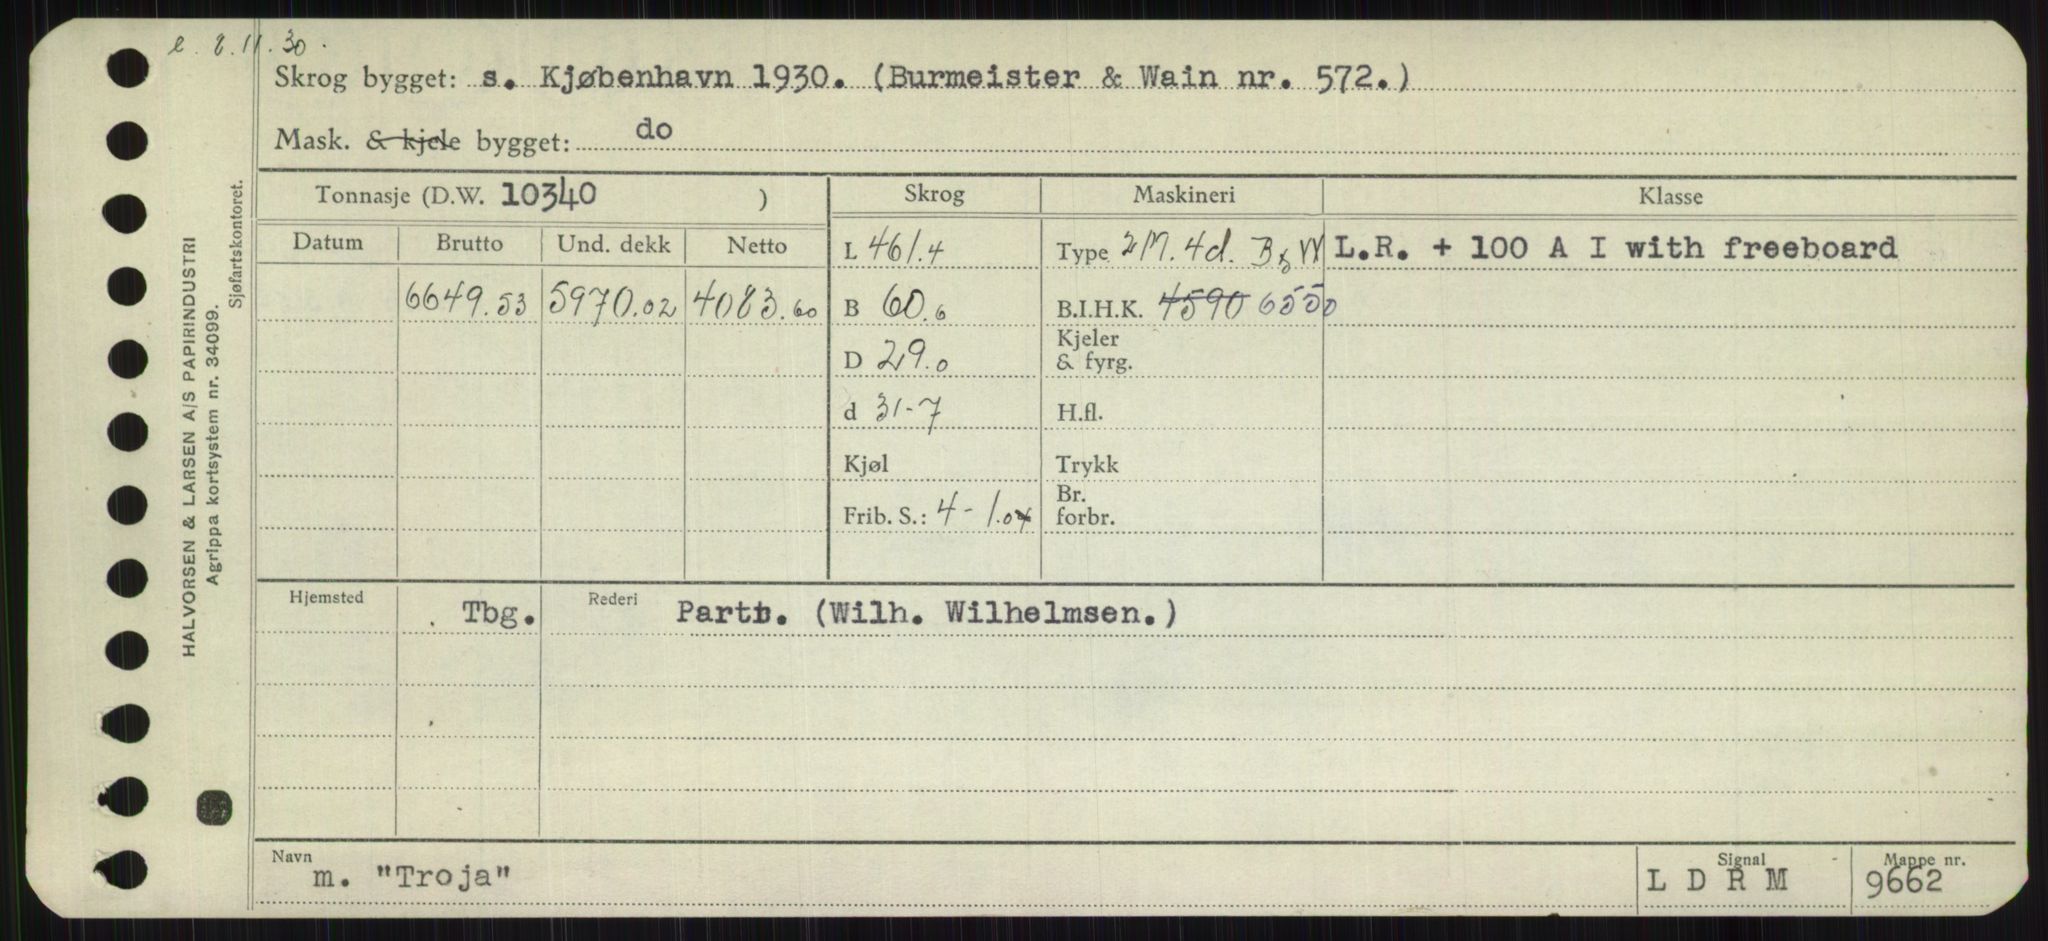 e. 8.11.30.
Skrog bygget: s. Kjøbenhavn 1930. (Burmeister & Wain nr. 572.)
Mask. & kjele bygget: do
Tonnasje (D.W. 10340 )
Skrog
Maskineri
Klasse
Datum Brutto Und. dekk Netto
L 461.4
Type 2M. 4d. B & W
L.R. + 100 A I with freeboard
6649.53 5970.02 4083.60
B 60.6
B.I.H.K. 4590 6550
D 29.0
Kjeler
& fyrg.
d 31-7
H.fl.
Kjøl
Trykk
Frib. S.: 4 - 1.04
Br.
forbr.
Hjemsted Tbg. Rederi Partr. (Wilh. Wilhelmsen.)
Navn
m. "Troja"
Signal
L D R M
Mappe nr.
9662
HALVORSEN & LARSEN A/S PAPIRINDUSTRI
Agrippa kortsystem nr. 34099.
Sjøfartskontoret.